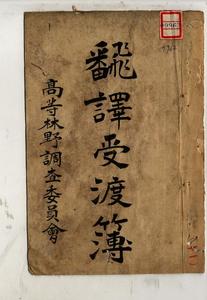 飜譯受渡簿
高等林野調査委員會